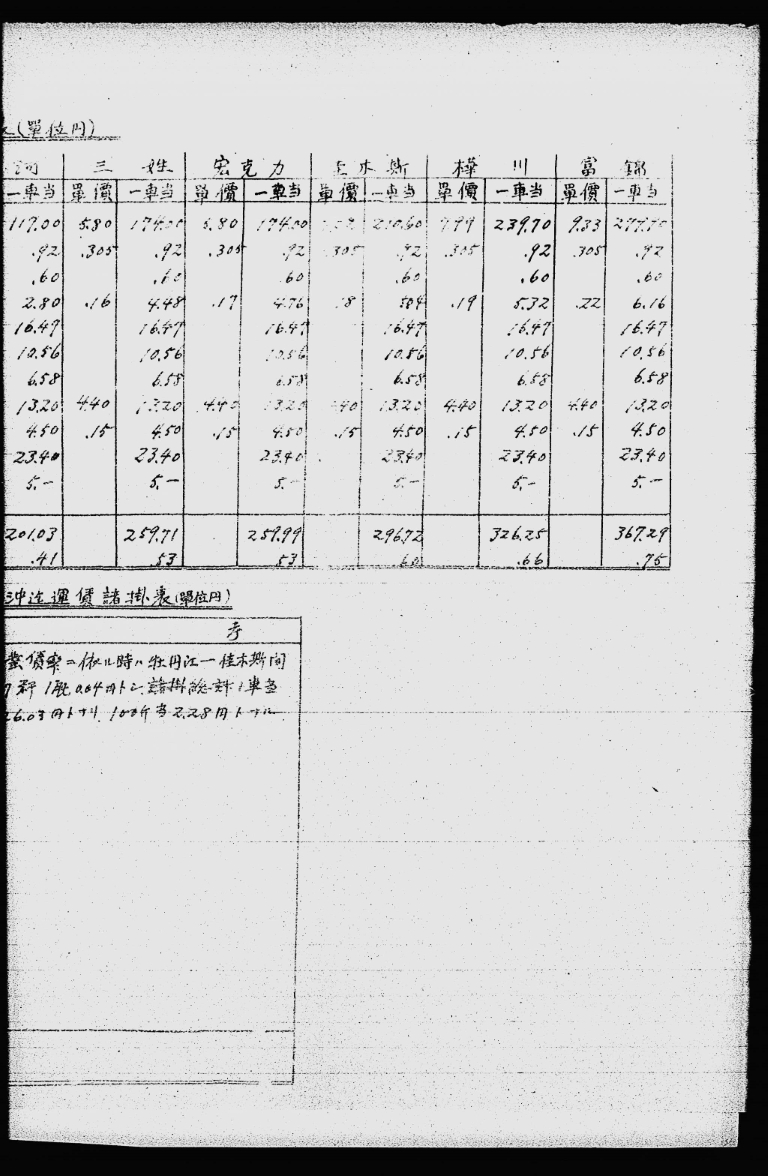 (單位円)
三姓 宏克力 木斯 樺川 富錦
一車当 單價 一車当 單價 一車当 單價 一車当 單價 一車当 單價 一車当
117.00 5.80 174.00 5.80 174.00 210.60 7.99 239.70 9.33
.92 .305 .92 .305 .92 .305 .92 .305 .92 .305 .92
.60 .60 .60 .60 .60 .60
2.80 .16 4.48 .17 4.76 .18 .19 5.32 .22 6.16
16.47 16.47 16.47 16.47 16.47 16.47
10.56 10.56 10.56 10.56 10.56 10.56
6.58 6.58 6.58 6.58 6.58 6.58
13.20 4.40 13.20 4.40 13.20 4.40 13.20 4.40 13.20 4.40 13.20
4.50 .15 4.50 .15 4.50 .15 4.50 .15 4.50 .15 4.50
23.40 23.40 23.40 23.40 23.40 23.40
5.- 5.- 5.- 5.- 5.- 5.-
201.03 259.71 259.99 296.72 326.25 367.29
.41 .53 .53 .60 .66 .75
迄運賃諸掛表(單位円)
考
率ニ依ル時ハ牡丹江一佳木斯間
0.04円トシ諸掛総計1車当
26.03円トナリ 100斤当2.28円トナル